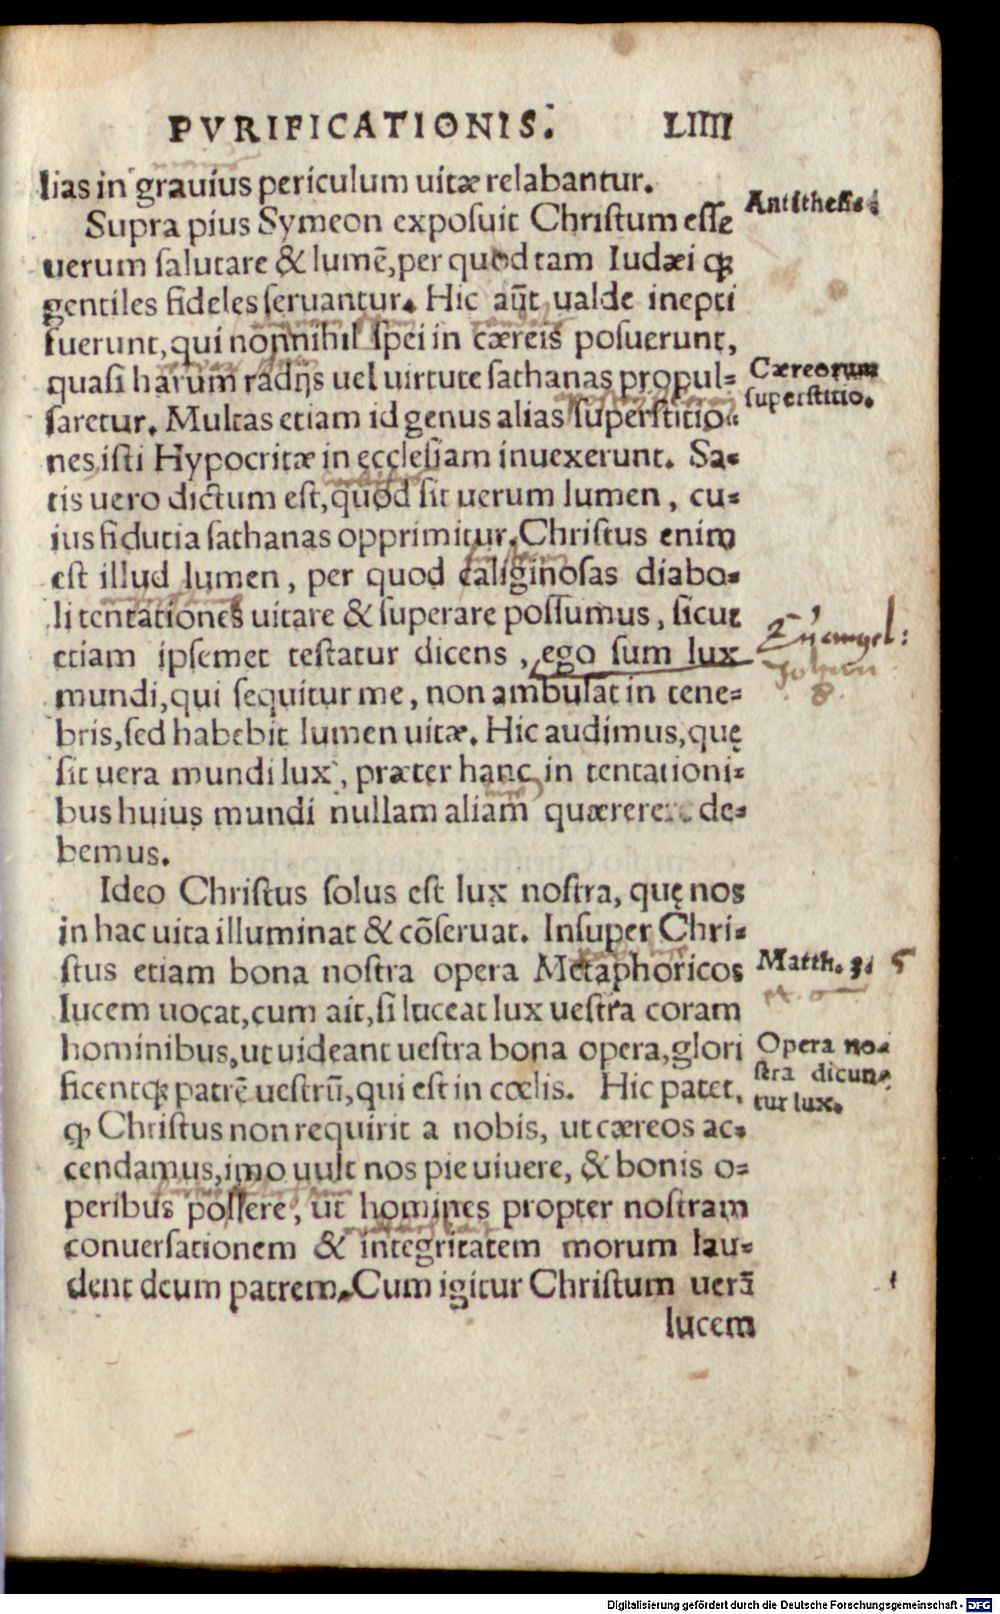 PVRIFICATIONIS. LIIII
lias in grauius periculum uitæ relabantur.
Supra pius Symeon exposuit Christum esse
Antithesis.
uerum salutare & lumẽ, per quod tam Iudæi ꝗ̃
gentiles fideles seruantur. Hic aũt ualde inepti
fuerunt, qui nonnihil spei in cæreis posuerunt,
quasi harum radijs uel uirtute sathanas propul-
Cæreorum
superstitio.
saretur. Multas etiam id genus alias superstitio-
nes isti Hypocritæ in ecclesiam inuexerunt. Sa-
tis uero dictum est, quod sit uerum lumen, cu-
ius fidutia sathanas opprimitur. Christus enim
est illud lumen, per quod caliginosas diabo-
li tentationes uitare & superare possumus, sicut
etiam ipsemet testatur dicens, ego sum lux
Euangel:
Johan
8.
mundi, qui sequitur me, non ambulat in tene-
bris, sed habebit lumen uitæ. Hic audimus, quę
sit uera mundi lux, præter hanc in tentationi-
bus huius mundi nullam aliam quærere de-
bemus.
Ideo Christus solus est lux nostra, quę nos
in hac uita illuminat & cõseruat. Insuper Chri-
stus etiam bona nostra opera Metaphoricos
Matth. 3. 5
lucem uocat, cum ait, si luceat lux uestra coram
hominibus, ut uideant uestra bona opera, glori
Opera no-
stra dicun-
tur lux.
ficentq; patrẽ uestrũ, qui est in cœlis. Hic patet,
ꝙ Christus non requirit a nobis, ut cæreos ac-
cendamus, imo uult nos pie uiuere, & bonis o-
peribus possere, ut homines propter nostram
conuersationem & integritatem morum lau-
dent deum patrem. Cum igitur Christum uerã
lucem
Digitalisierung gefördert durch die Deutsche Forschungsgemeinschaft - DFG